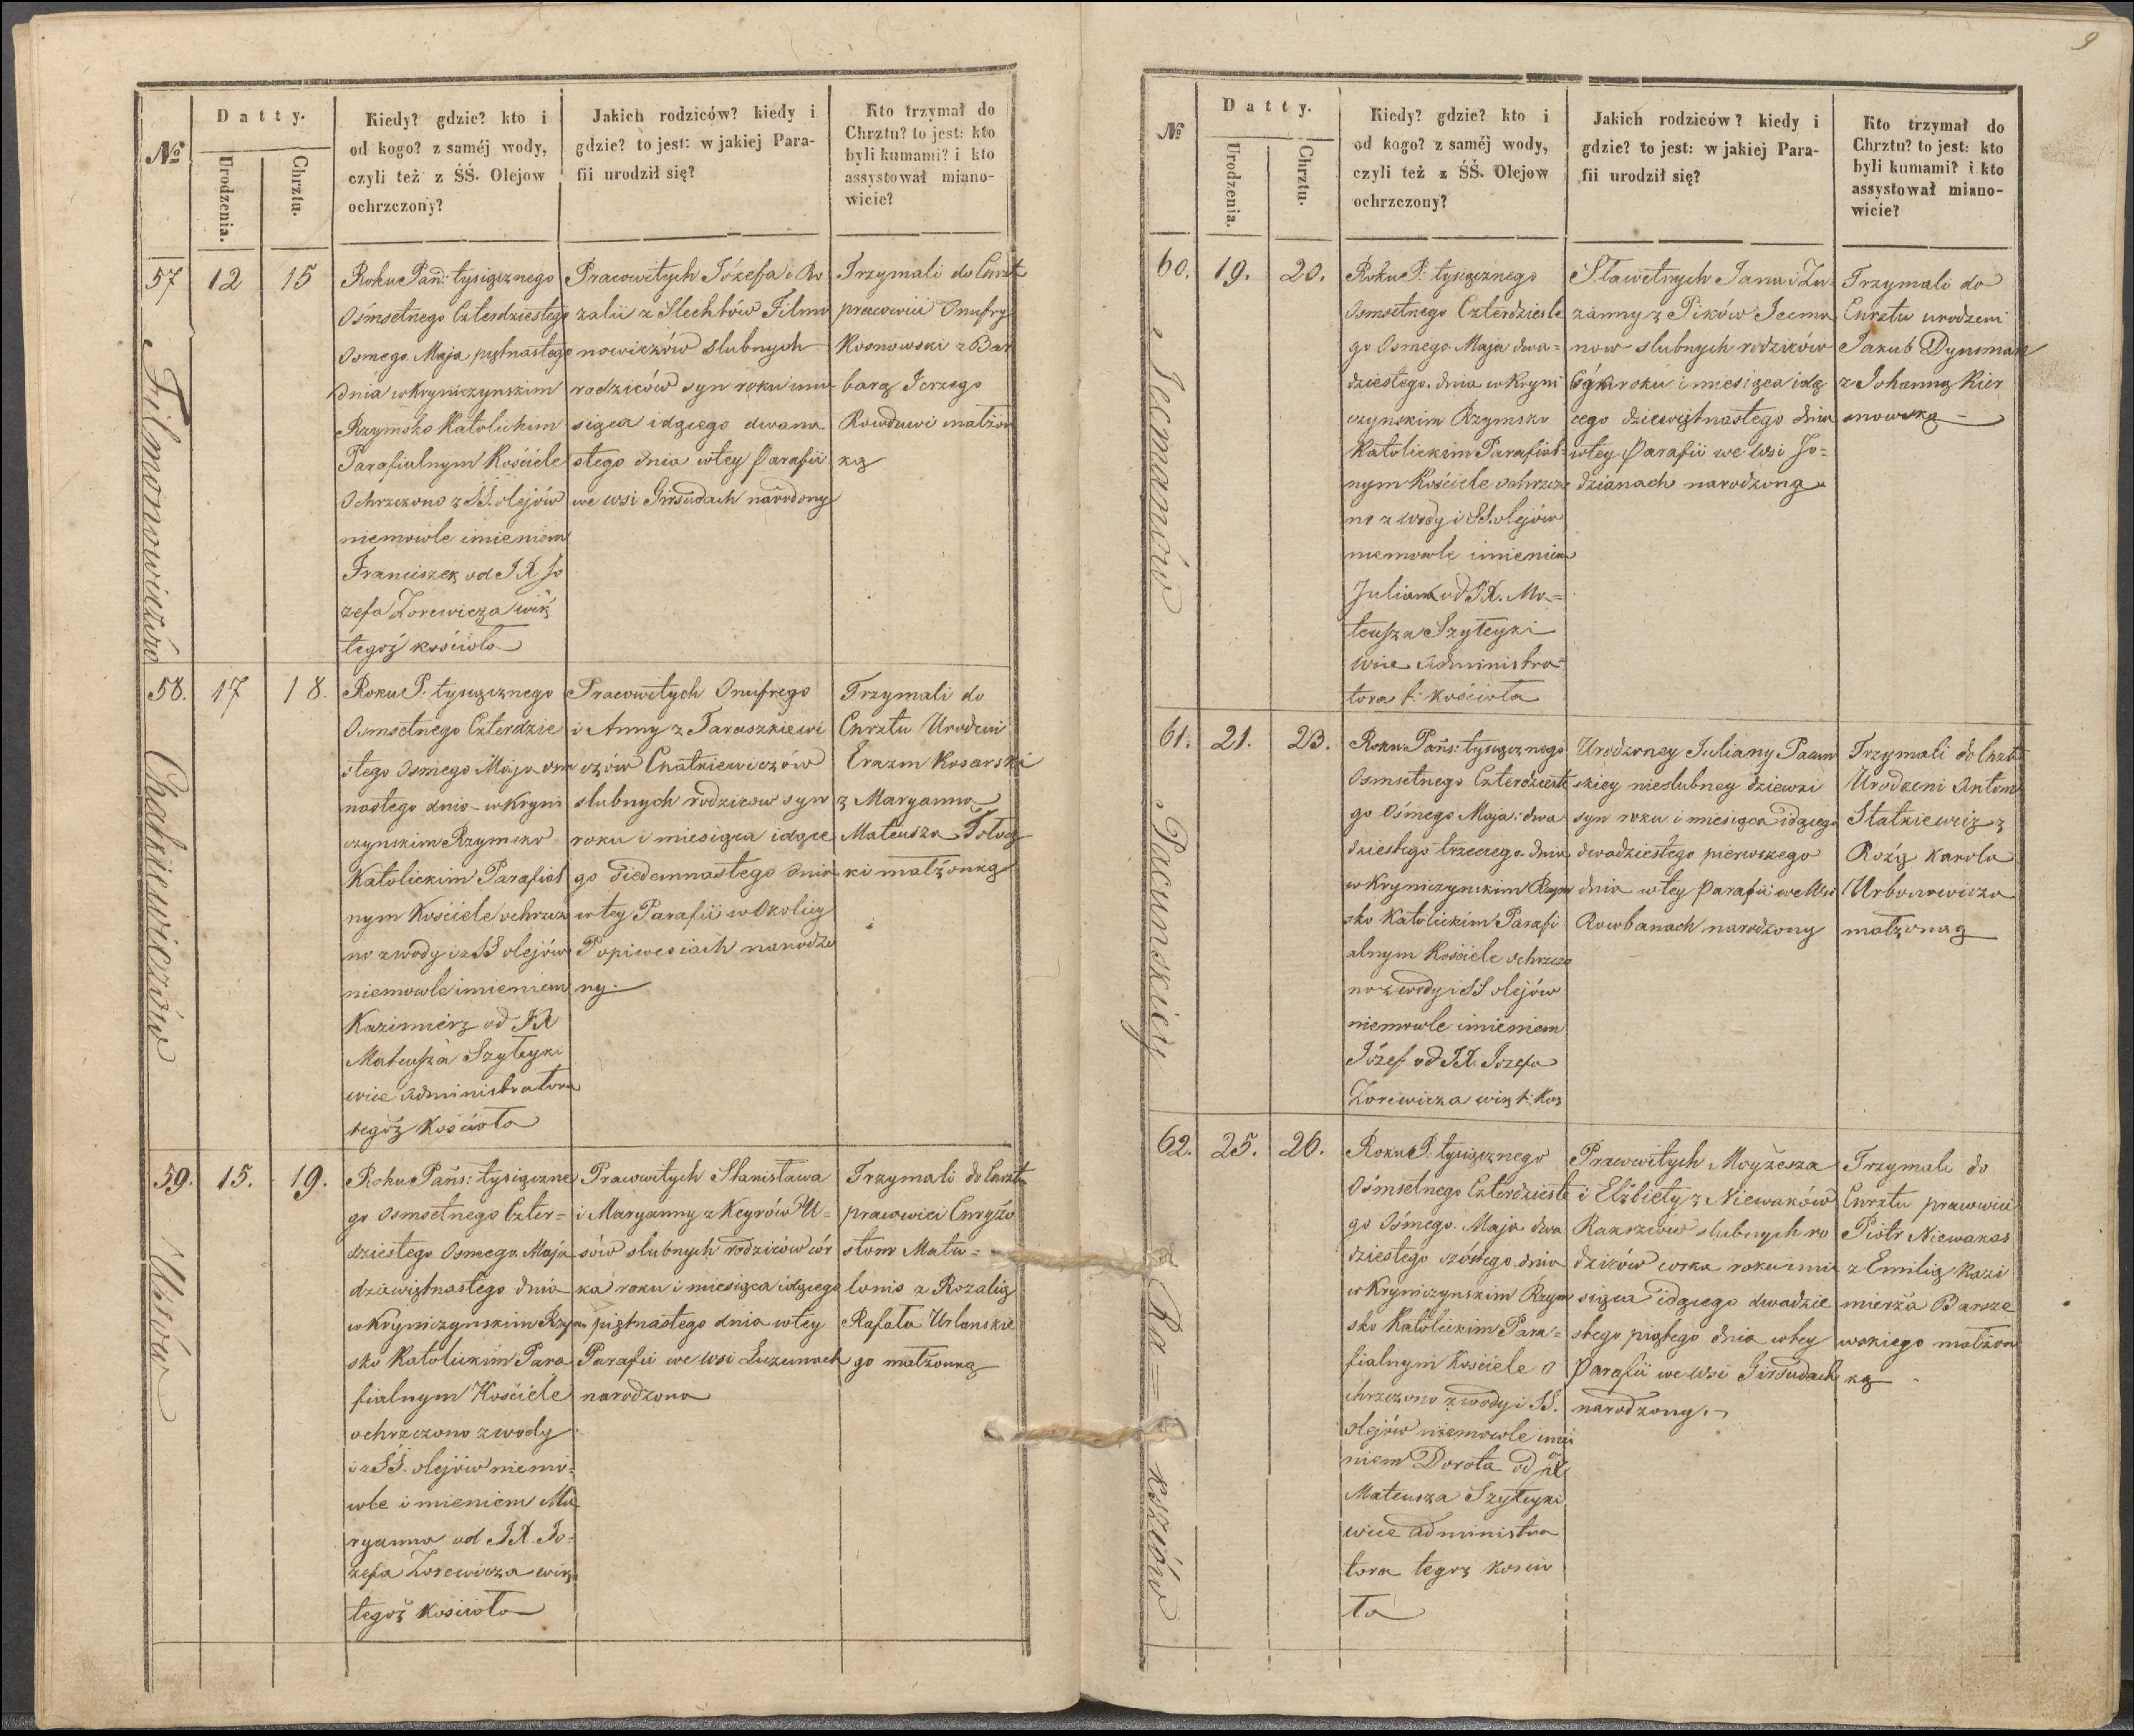 9
№
Datty.
Urodzenia.
Chrztu.
Kiedy? gdzie? kto i
od kogo? z saméj wody,
czyli też z ŚŚ. Olejow
ochrzczony?
Jakich rodziców? kiedy i
gdzie? to jest: w jakiej Para-
fii urodził się?
Kto trzymał do
Chrztu? to jest: kto
byli kumami? i kto
assystował miano-
wicie?
57
Filmonowiczów
12
15
Roku Pań: tysiącznego
Ośmsetnego Czterdziestego
Osmego Maja piętnastego
dnia w Kryniczynskim
Rzymsko Katolickim
Parafialnym Kościele
Ochrzczono z SS. olejów
niemowle imieniem
Franciszek od JX Jo
zefa Zorewicza wik
tegoż kościoła
Pracowitych Józefa i Ro
zalii z Slechtów Filmo
nowiczów slubnych
rodziców syn roku i mie
siąca idącego dwana
stego dnia w tey Parafii
we wsi Girsudach narodzony
Trzymali do Chrzt
pracowici Onufry
Kosnowski z Bar
barą Jerzego
Rowduwi małżon
ką
58.
Chatkiewiczów
17
18.
Roku P: tysiącznego
Osmsetnego Czterdzie
stego Osmego Maja osm
nastego dnia w Kryni
czynskim Rzymsko
Katolickim Parafial
nym Kościele ochrzczo
no z wody i z SS olejów
niemowle imieniem
Kazimierz od JX
Mateusza Szyteyki
wice Administratora
tegoż Kościoła
Pracowitych Onufrego
i Anny z Taraszkiewi
czów Chatkiewiczów
slubnych rodzicow syn
roku i miesiąca idące
go siedemnastego dnia
w tey Parafii w Okolicy
Popiwesiach narodzo
ny.
Trzymali do
Chrztu Urodzeni
Erazm Kosarski
z Maryanną
Mateusza Tołocz
ki małżonką
59.
Usów
15.
19.
Roku Pańs: tysiączne
go Osmsetnego Czter=
dziestego Osmego Maja
dziewiętnastego dnia
w Kryniczynskim Rzym
sko Katolickim Para
fialnym Kościele
ochrzczono z wody
i z SS. olejów niemo=
wle imieniem Ma
ryanna od JX. Jo=
zefa Zorewicza wik
tegoż kościoła
Pracowitych Stanisława
i Maryanny z Keyrów U=
sów slubnych rodziców cór
ka roku i miesiąca idącego
piętnastego dnia w tey
Parafii we wsi Luzunach
narodzona
Trzymali do Chrztu
pracowici Chryzo
stom Matu=
lonis z Rozalią
Rafała Urlanskie
go małżonką
№
Datty.
Urodzenia.
Chrztu.
Kiedy? gdzie? kto i
od kogo? z saméj wody,
czyli też z ŚŚ. Olejow
ochrzczony?
Jakich rodziców? kiedy i
gdzie? to jest: w jakiej Para-
fii urodził się?
Kto trzymał do
Chrztu? to jest: kto
byli kumami? i kto
assystował miano-
wicie?
60.
Jecmanów
19.
20.
Roku P: tysiącznego
Osmsetnego Czterdzieste
go Osmego Maja dwa=
dziestego dnia w Kryni
czynskim Rzymsko
Katolickim Parafial=
nym Kościele ochrzczo
no z wody i SS. olejów
niemowle imieniem
Julianna od JX. Ma=
teusza Szyteyki
wice Administra=
tora t: kościoła
Sławetnych Jana i Zu=
zanny z Pików Jecma
now slubnych rodziców
córka roku i miesiąca idą
cego dziewiętnastego dnia
w tey Parafii we wsi Jo=
dzianach narodzona
Trzymali do
Chrztu urodzeni
Jakub Dynsman
z Johanną Kier
snowską
61.
Pacunskiey
21.
23.
Roku Pańs: tysiącznego
Osmsetnego Czterdzieste
go Ośmego Maja: dwa
dziestego trzeciego dnia
w Kryniczynskim Rzym
sko Katolickim Parafi
alnym Kościele ochrzczo
no z wody i SS olejów
niemowle imieniem
Józef od JX. Jozefa
Zorewicza wik t: Koś
Urodzoney Juliany Pacun
skiey nieslubney dziewki
syn roku i miesiąca idącego
dwadziestego pierwszego
dnia w tey Parafii we Wsi
Rowbanach narodzony
Trzymali do Chrzt
Urodzeni Antoni
Statkiewicz z
Rozą Karola
Urbonowicza
małżonką
62.
Ra=kszów
25.
26.
Roku P: tysiącznego
Ośmsetnego Czterdzieste
go Ośmego Maja dwa
dziestego szóstego dnia
w Kryniczynskim Rzym
sko Katolickim Para=
fialnym Kościele o
chrzczono z wody i SS.
olejów niemowle imie
niem Dorota od JX
Mateusza Szyteyki
wice administra
tora tegoż koscio
ła
Pracowitych Moyżesza
i Elżbiety z Niewaków
Rakszów slubnych ro
dziców córka roku i mie
siąca idącego dwadzie
stego piątego dnia w tey
Parafii we wsi Girsudach
narodzony.
Trzymali do
Chrztu pracowici
Piotr Niewakas
z Emilią Kazi
mierza Barsze
wskiego małżon
ką